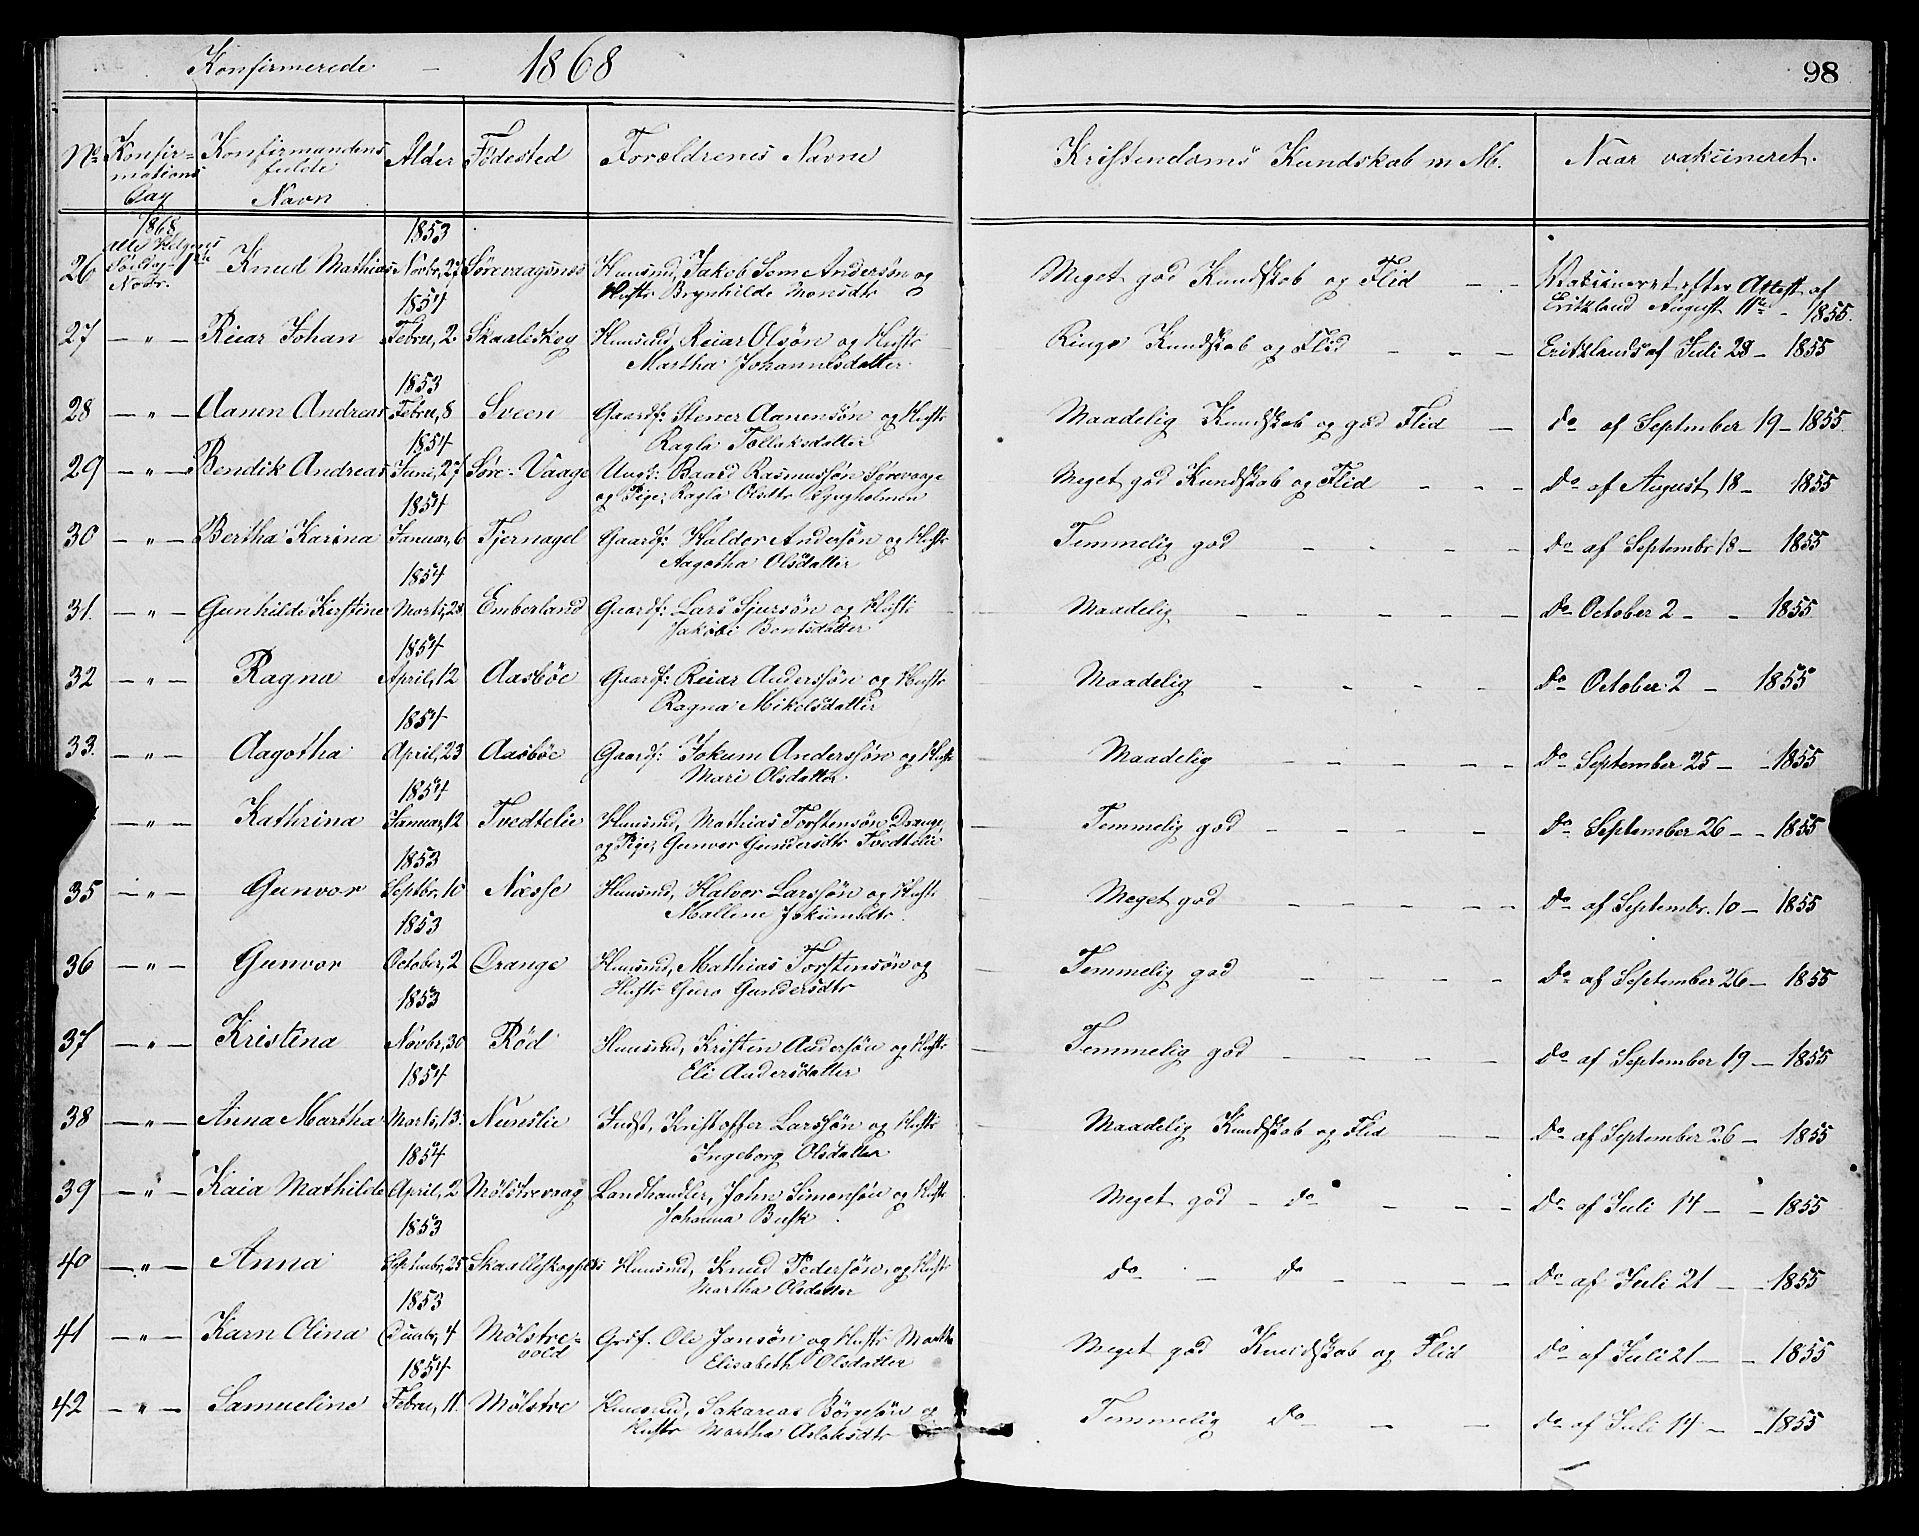 Konfirmerede - 1868
98
No. Konfir= Konfirmandens Alder Födested Forældrenes Navne Kristendoms Kundskab m M. Naar vakcineret.
mations fulde
Dag Navn
1868 1853
alle Helgenes
26 Söndag 1ste Knud Mathias Novbr, 27 Sörevaagsnæs Huusmd, Jakob Sem Andersön og Meget god Kundskab og Flid - - Vakcineret efter Attest af
Novbr. Hustr Brynhilde Monsdtr Erikland August 11te - 1855.
1854
27 - " - Reiar Johan Febru, 2 Skaaleskog Huusmd, Reiar Olsön og Hustr Ringe Kundskab og Flid - - - Eriklands af Juli 28 - 1855
Martha Johannesdatter
1853
28 - " - Aanen Andreas Febru, 8 Sveen Gaardf: Stener Aanensön og Hustr Maadelig Kundskab og god Flid - do af September 19 - 1855
Ragla Tollaksdatter
1854
29 - " - Bendik Andreas Juni, 27 Söre-Vaage Ungk: Baard Rasmussön Sörevaage Meget god Kundskab og Flid - - - do af August 18 - 1855
og Pige, Ragla Olsdtr
1854
30 - " - Bertha Karina Januar, 6 Tjernagel Gaardf: Haldor Andersön og Hustr Temmelig god - - - - do af Septembr 18 - 1855
Aagotha Olsdatter
1854
31. - " - Gunhilde Kirstine Marts, 28 Emberland Gaardf: Lars Sjursön og Hustr Maadelig - - - - do October 2 - - 1855
Jakobi Bentsdatter
1854
32 - " - Ragna April, 12 Aasböe Gaardf: Reiar Anderssön og Hustr Maadelig - - - - do October 2 - 1855
Ragna Mikelsdatter
1854
33. - " - Aagotha April, 23 Aasböe Gaardf: Jokum Anderssön og Hustr Maadelig - - - - - do September 25 - - 1855
Mari Olsdatter
1854
- " - Kathrina Januar, 12 Tvedtelie Huusmd, Mathias Torstensön Drange, Temmelig god - - - - do September 26 - - 1855
og Pige, Gunvor Gundersdtr Tvedtelie
1853
35 - " - Gunvor Septbr, 10 Næsse Huusmd, Halvor Larssön og Hustr Meget god - - - - - do af Septembr. 10 - 1855
Mallene Jokumsdtr
1853
36 - " - Gunvor October, 2 Drange Huusmd, Mathias Torstensön og Temmelig god - - - - do af September 26 - 1855
Hustr Guro Gundersdtr
1853
37 - " - Kristina Novbr, 30 Röd Huusmd, Kristen Andersön og Hustr Temmelig god - - - - do af September 19 - 1855
Eli Andersdatter
1854
38 - " - Anna Martha Marts, 13. Nunslie Indst, Kristoffer Larssön og Hustr Maadelig Kundskab og Flid - - do af September 26 - 1855
Ingeborg Olsdatter
1854
39 - " - Kaia Mathilde April, 2 Mölstrevaag Landhandler, John Simonsön og Hustr Meget god - do - - - do af Juli 14 - - 1855
Johanna Busk
1853
40 - " - Anna Septmbr, 25 Huusmd, Knud Pedersön, og Hustr do - do - - - - do af Juli 21 - - 1855
Martha Olsdatter
1853
41 - " - Karn Olina Decmbr, 4 Mölstre= Grdf. Ole Jansön og Hustr Martha Meget god Kundskab og Flid do af Juli 21 - - 1855
vold Elisabeth Olsdatter
1854
42 - " - Samueline Febru, 11. Mölstre Huusmd, Sakarias Börgesön og Temmelig do - - do af Juli 14 - - 1855
Hustr Martha Aslaksdtr